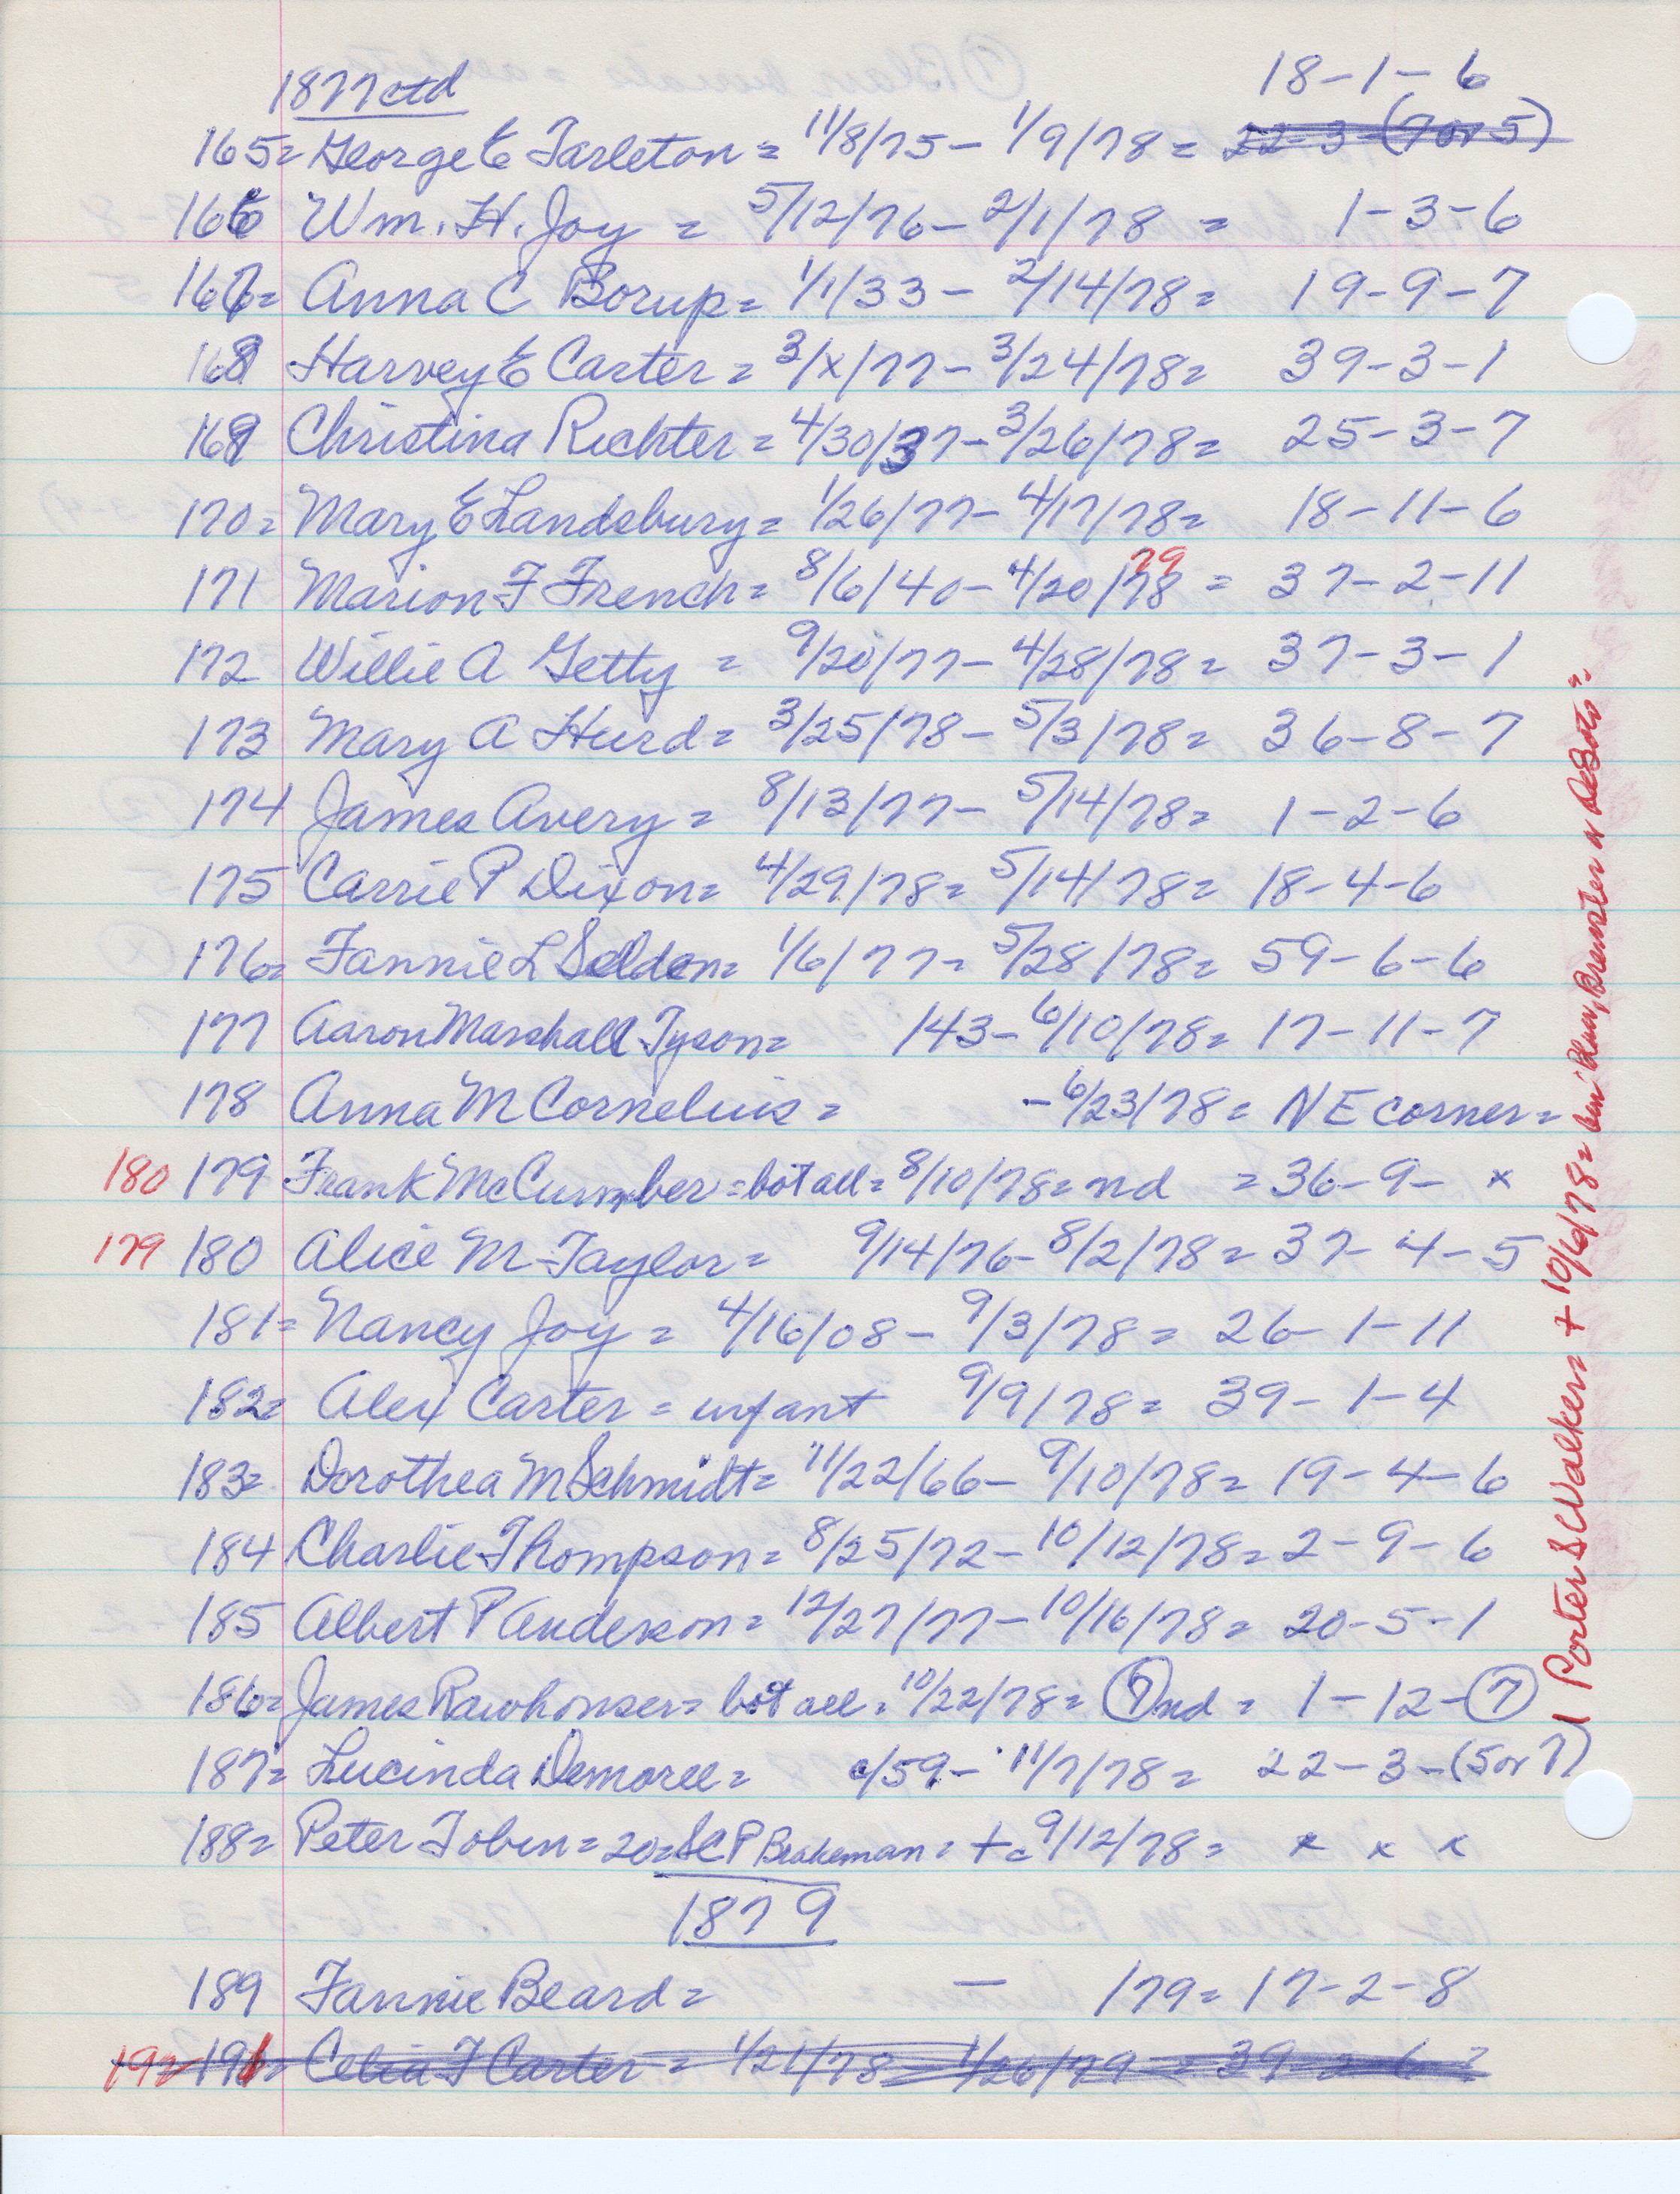 1877 ctd
18-1-6
165= George E Tarleton = 11/8/75 - 1/9/78 = 22-3-(7 or 5)
166 Wm. H. Joy = 5/12/76 - 2/1/78 = 1-3-6
167= Anna C Borup = 1/1/33 - 2/14/78 = 19-9-7
168 Harvey E Carter = 3/x/77 - 3/24/78 = 39-3-1
169 Christina Richter = 4/30/37 - 3/26/78 = 25-3-7
170= Mary E Landsbury = 1/26/77 - 4/17/78 = 18-11-6
79
171 Marion F French = 8/6/40 - 4/20/78 = 37-2-11
172 Willie A Getty = 9/20/77 - 4/28/78 = 37-3-1
173 Mary A Hurd = 3/25/78 - 5/3/78 = 36-8-7
174 James Avery = 8/13/77 - 5/14/78 = 1-2-6
175 Carrie P Dixon = 4/29/78 = 5/14/78 = 18-4-6
176= Fannie L Selden = 1/6/77 = 5/28/78 = 59-6-6
177 Aaron Marshall Tyson = 143 - 6/10/78 = 17-11-7
178 Anna M Cornelius = - 6/23/78 = NE corner =
180 179 Frank McCumber = bot all = 8/10/78 = nd = 36-9- x
179 180 Alice M Taylor = 9/14/76 - 8/2/78 = 37-4-5
181= Nancy Joy = 4/16/08 - 9/3/78 = 26-1-11
182= Alex Carter = infant 9/9/78 = 39-1-4
183= Dorothea M Schmidt = 11/22/66 - 9/10/78 = 19-4-6
184 Charlie Thompson = 8/25/72 - 10/12/78 = 2-9-6
185 Albert P Anderson = 12/27/77 - 10/16/78 = 20-5-1
186= James Rawhouser = bot all = 10/22/78 = (7) nd = 1-12-(7)
187= Lucinda Demoree = c/59 - 11/7/78 = 22-3-(5 or 7)
188= Peter Tobin = 20 = SCP Brakeman = + c 9/12/78 = x x x
1879
189 Fannie Beard = - 179 = 17-2-8
192 191= Celia F Carter = 1/21/78 = 1/26/79 = 39-2-6 =
Porter S Walker = + 10/6/78 = Blair, Brewster or DeSoto"=